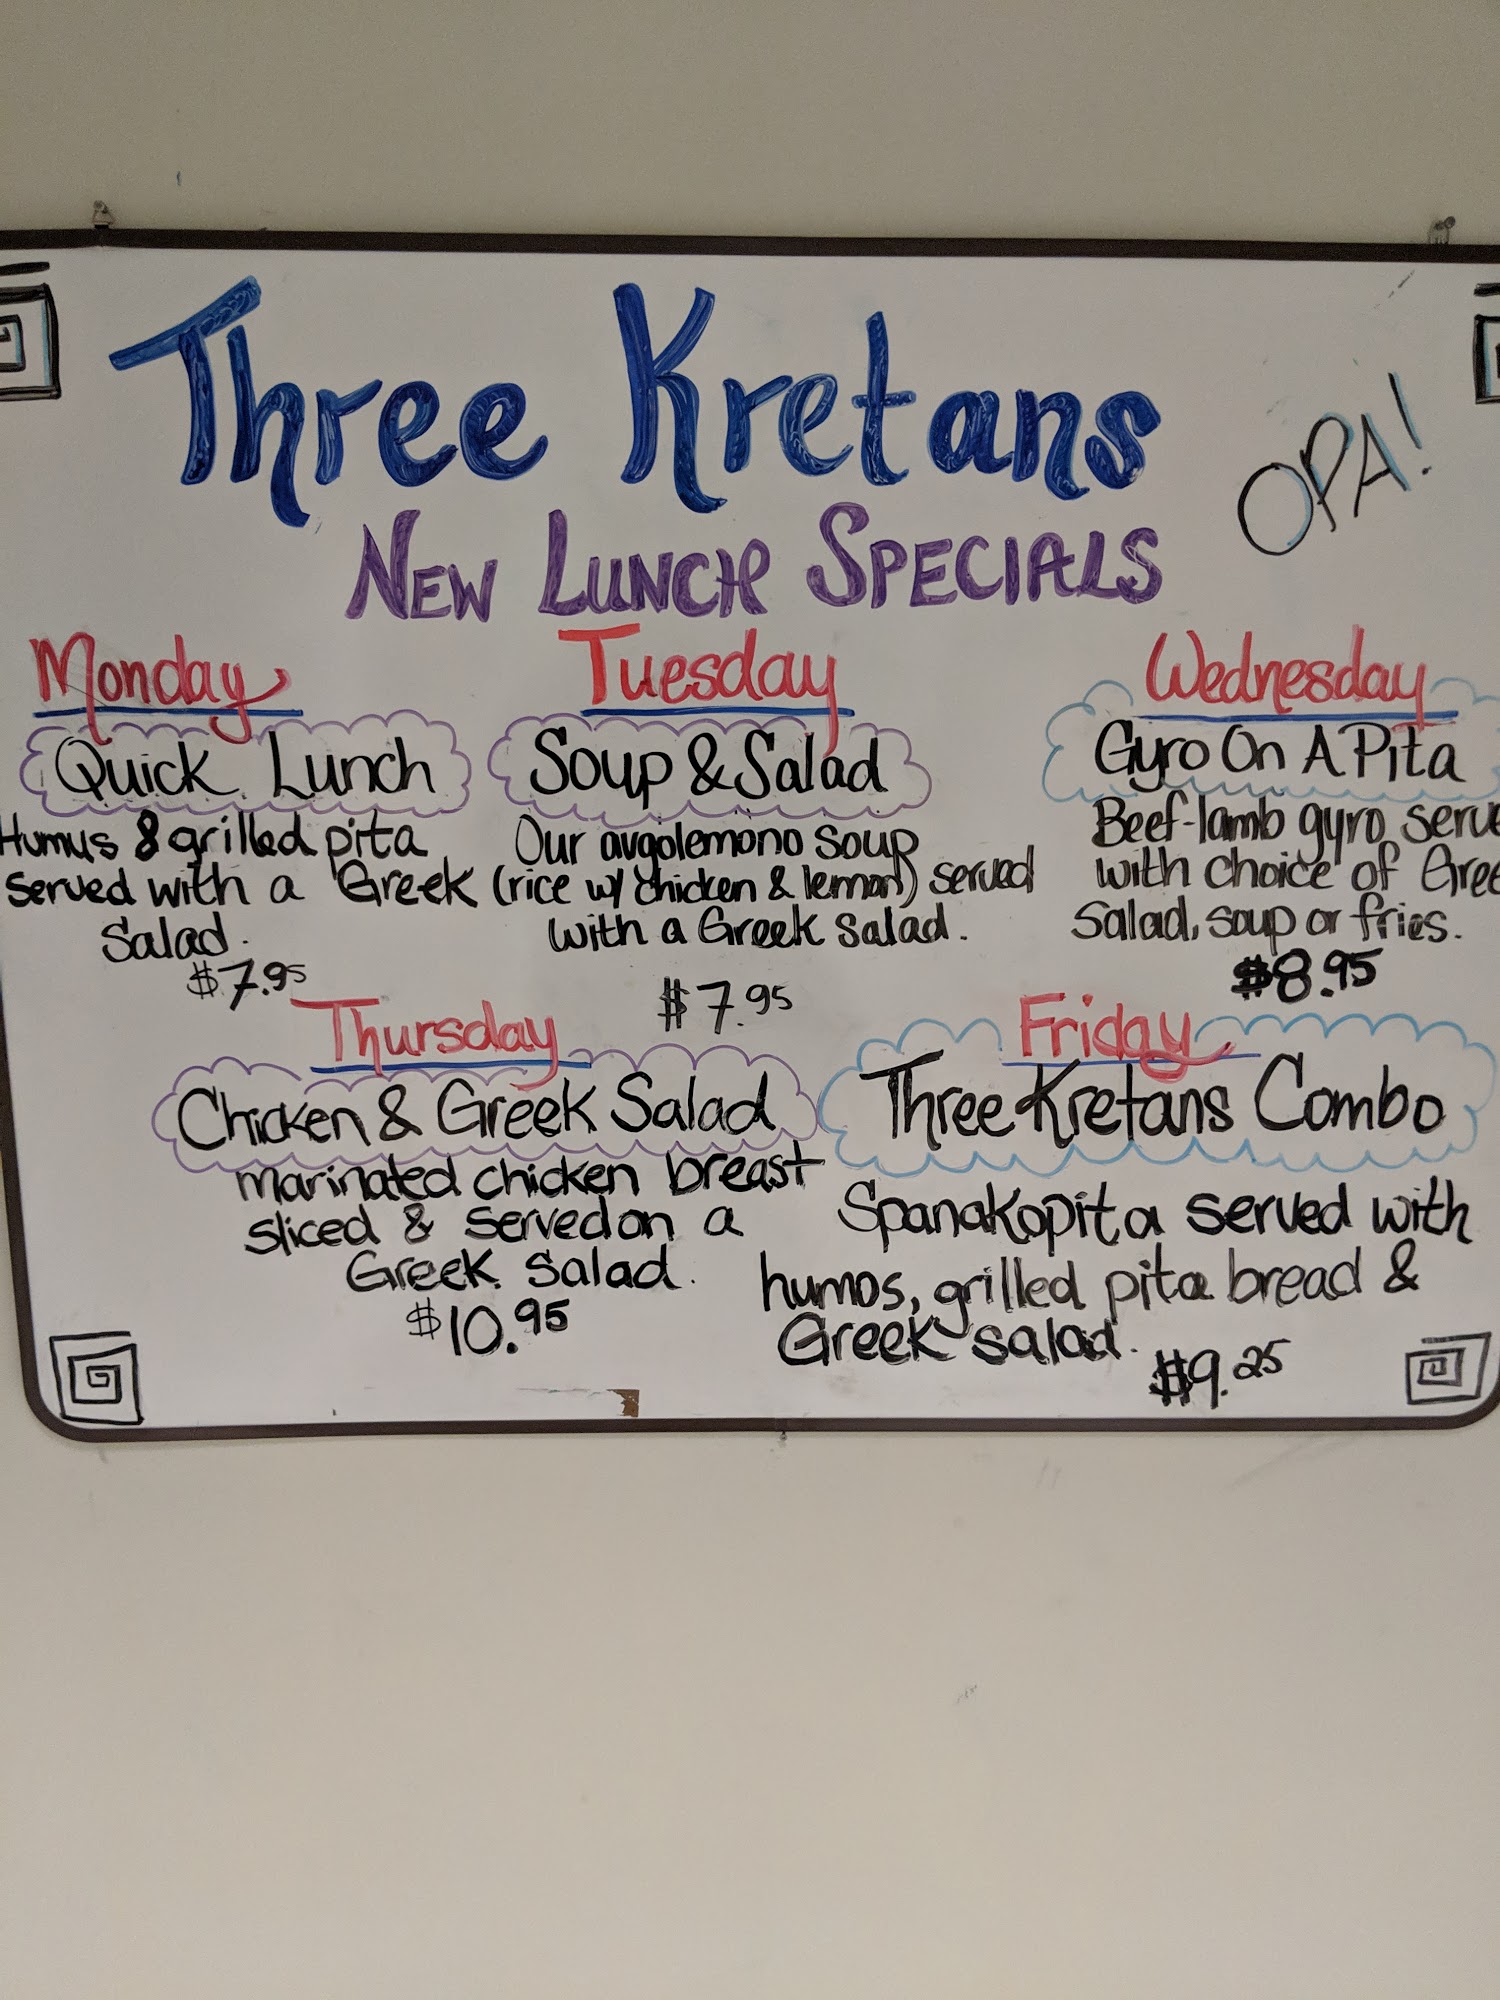 Three Kretans
OPA!
NEW LUNCH SPECIALS
Monday
Quick Lunch
Humus & grilled pita
served with a Greek
Salad.
$7.95
Tuesday
Soup & Salad
Our avgolemono soup
(rice w/ chicken & lemon) served
with a Greek Salad.
$7.95
Wednesday
Gyro On A Pita
Beef-lamb gyro serve
with choice of Gree
Salad, soup or fries.
$8.95
Thursday
Chicken & Greek Salad
marinated chicken breast
sliced & served on a
Greek Salad.
$10.95
Friday
Three Kretans Combo
Spanakopita served with
humos, grilled pita bread &
Greek salad.
$9.25